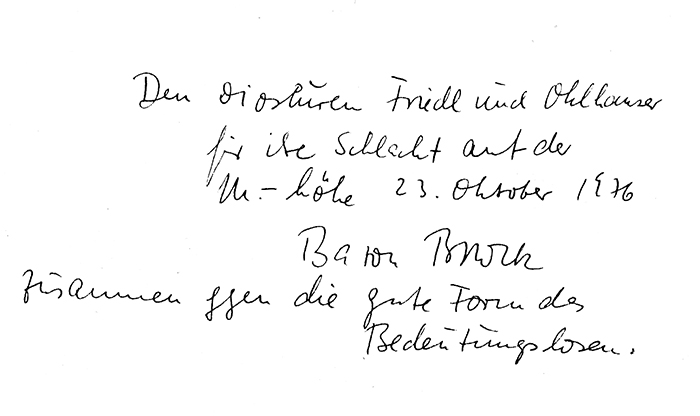 Den Dioskuren Friedl und Ohlhauser
für ihre Schlacht auf der
M.-höhe 23. Oktober 1976
Bazon Brock
zusammen ggen die gute Form des
Bedeutungslosen.